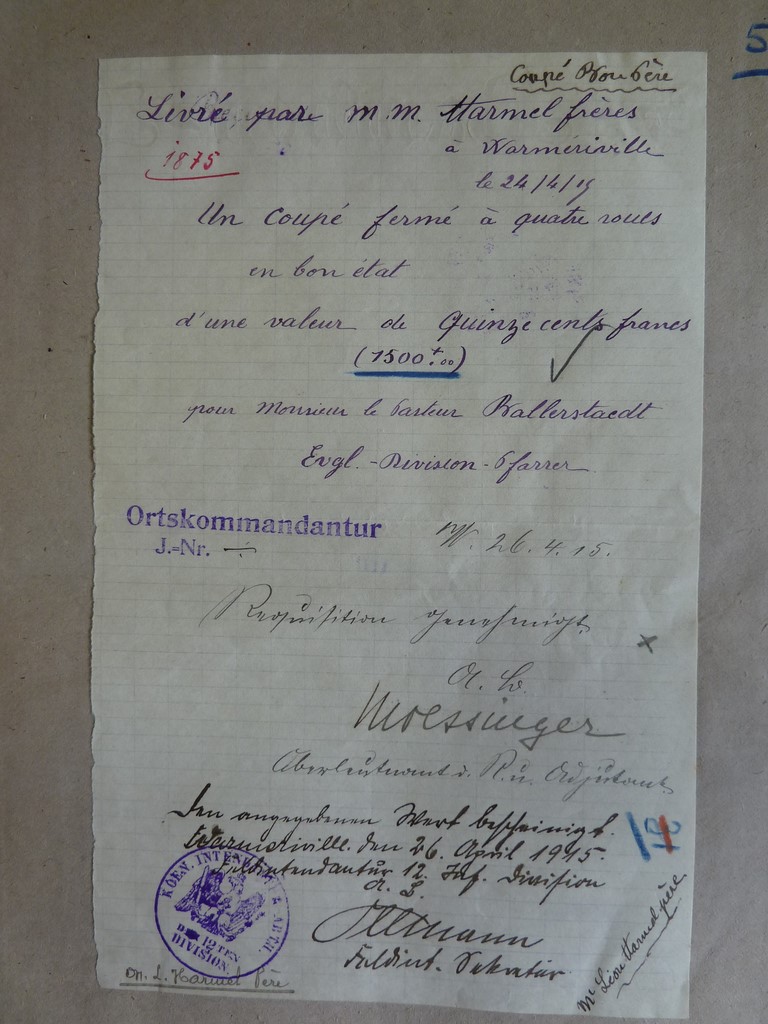 5
Coupé Bon Père
Livré par M.M. Harmel frères
à Warmériville
1875
le 24/4/15
Un Coupé fermé à quatre roues
en bon état
d'une valeur de Quinze cents francs
(1500+.00)
pour Monsieur le Pasteur Ballerstaedt
Evgl.-Division-Pfarrer
Ortskommandantur
J.=Nr. ÷
W. 26.4.15.
Requisition genehmigt.
Moessinger
Oberleutnant d. R. u. Adjutant
Den angegebenen Wert bescheinigt.
Warmeriville. den 26. April 1915.
Feldintendantur 12. Inf. Division
Feldint. Sekretär
KOEN. INTENDANTUR ABTH.
DER 12TEN
DIVISION
Dn. L. Harmel Père
Mr Léon Harmel père